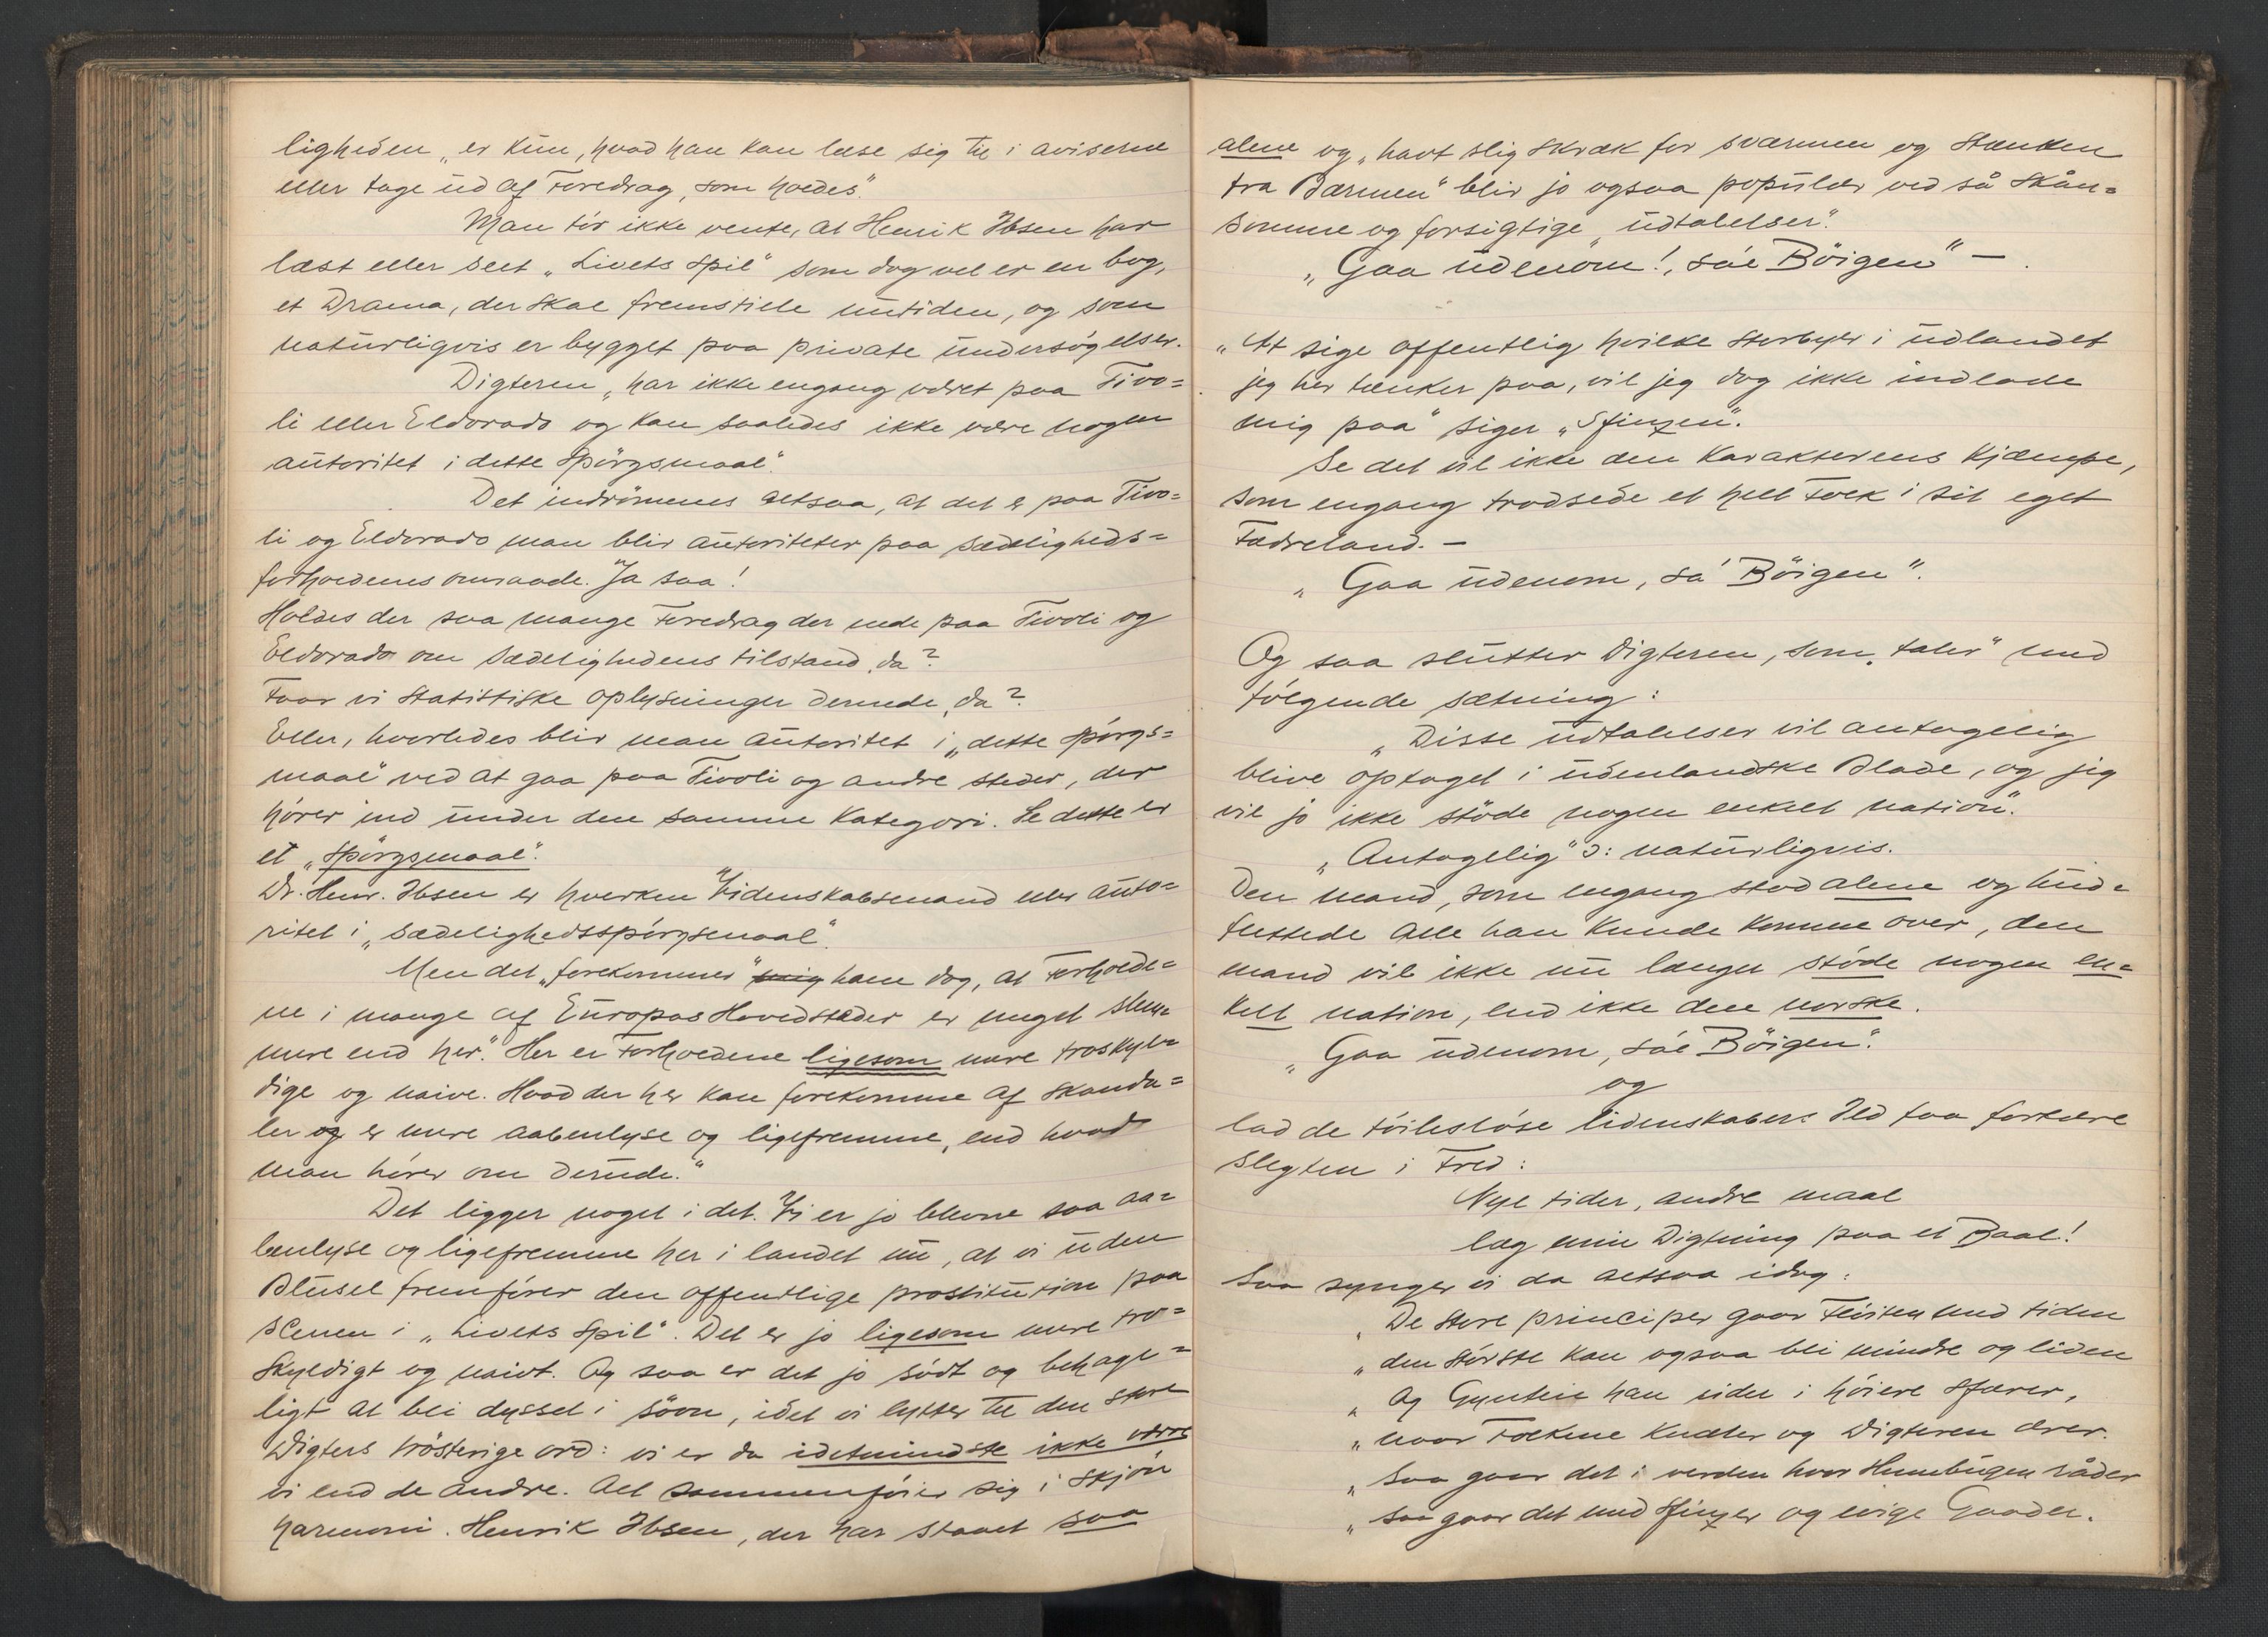 ligheden „er kun, hvad han kan læse sig til i aviserne
eller tage ud af Foredrag, som holdes“.
Man tör ikke vente, at Henrik Ibsen har
læst eller seet „Livets Spil“ som dog vel er en bog,
et Drama, der skal fremstille nutiden, og som
naturligvis er bygget paa private undersøgelser.
Digteren „har ikke engang været paa Tivo=
li eller Eldorado og kan saaledes ikke være nogen
autoritet i dette Spörgsmaal“.
Det indrömmes altsaa, at det er paa Tivo=
li og Eldorado man blir autoriteter paa sædeligheds=
forholdenes omraade. Ja saa!
Holdes der saa mange Foredrag der nede paa Tivoli og
Eldorado om Sædelighedens tilstand, da?
Faar vi statistiske oplysninger dernede, da?
Eller, hvorledes blir man autoritet i „dette spörgs=
maal“ ved at gaa paa Tivoli og andre steder, der
hörer ind under den samme Kategori. Se dette er
et „Spörgsmaal“.
Dr. Henr. Ibsen er hverken Videnskabsmand eller auto=
ritet i „sædelighedsspörgsmaal“.
Men det „forekommer“ mig ham dog, at Forholde=
ne i mange af Europas Hovedstæder er meget slem=
mere end her.“ Her er Forholdene ligesom mere troskyl=
dige og naive. Hvad der her kan forekomme af Skanda=
ler og er mere aabenlyse og ligefremme, end hvad
man hörer om derude.“
Det ligger noget i det. Vi er jo blevne saa aa=
benlyse og ligefremme her i landet nu, at vi uden
Blusel fremförer den offentlige prostitution paa
Scenen i „Livets Spil“. Det er jo ligesom mere tro=
skyldigt og naivt. Og saa er det jo södt og behage=
ligt at bli dysset i sövn, idet vi lytter til den store
Digters trösterige ord: vi er da idetmindste ikke værre
vi end de andre. Alt sammenföier sig i skjön
harmoni. Henrik Ibsen, der har staaet saa
alene og „havt slig Skræk for sværmen og Stænken
fra Bærmen“ blir jo ogsaa populær ved så skån=
somme og forsigtige „udtalelser“.
„Gaa udenom!, sa'e Böigen“ —
„At sige offentlig hvilke storbyer i udlandet
jeg her tænker paa, vil jeg dog ikke indlade
mig paa“ siger „Sfinxen“.
Se det vil ikke den Karakterens Kjæmpe,
som engang trodsede et helt Folk i sit eget
Fædreland. —
„Gaa udenom, sa' Böigen“.
Og saa slutter Digteren, som „taler“ med
følgende sætning:
„Disse udtalelser vil antagelig
blive optaget i udenlandske Blade, og jeg
vil jo ikke støde nogen enkelt nation“.
„Antagelig“ ɔ: naturligvis.
Den mand, som engang stod alene og
alle han kunde komme over, den
mand vil ikke nu længer støde nogen en=
kelt nation, end ikke den norske.
„Gaa udenom, sa'e Böigen“.
og
lad de töilesløse lidenskabers Ild faa fortære
Slegten i Fred:
Nye tider, andre maal
læg min Digtning paa et Baal!
Saa synger vi da altsaa idag:
„De store principer gaar Flöiten med tiden
„den største kan ogsaa bli mindre og liden
„Og Gyntein han rider i höiere Sfærer,
„naar Folkene Knæler og Digteren ærer.
„Saa gaar det i verden hvor Humbugen råder
„saa gaar det med Sfinxer og evige Gaader.